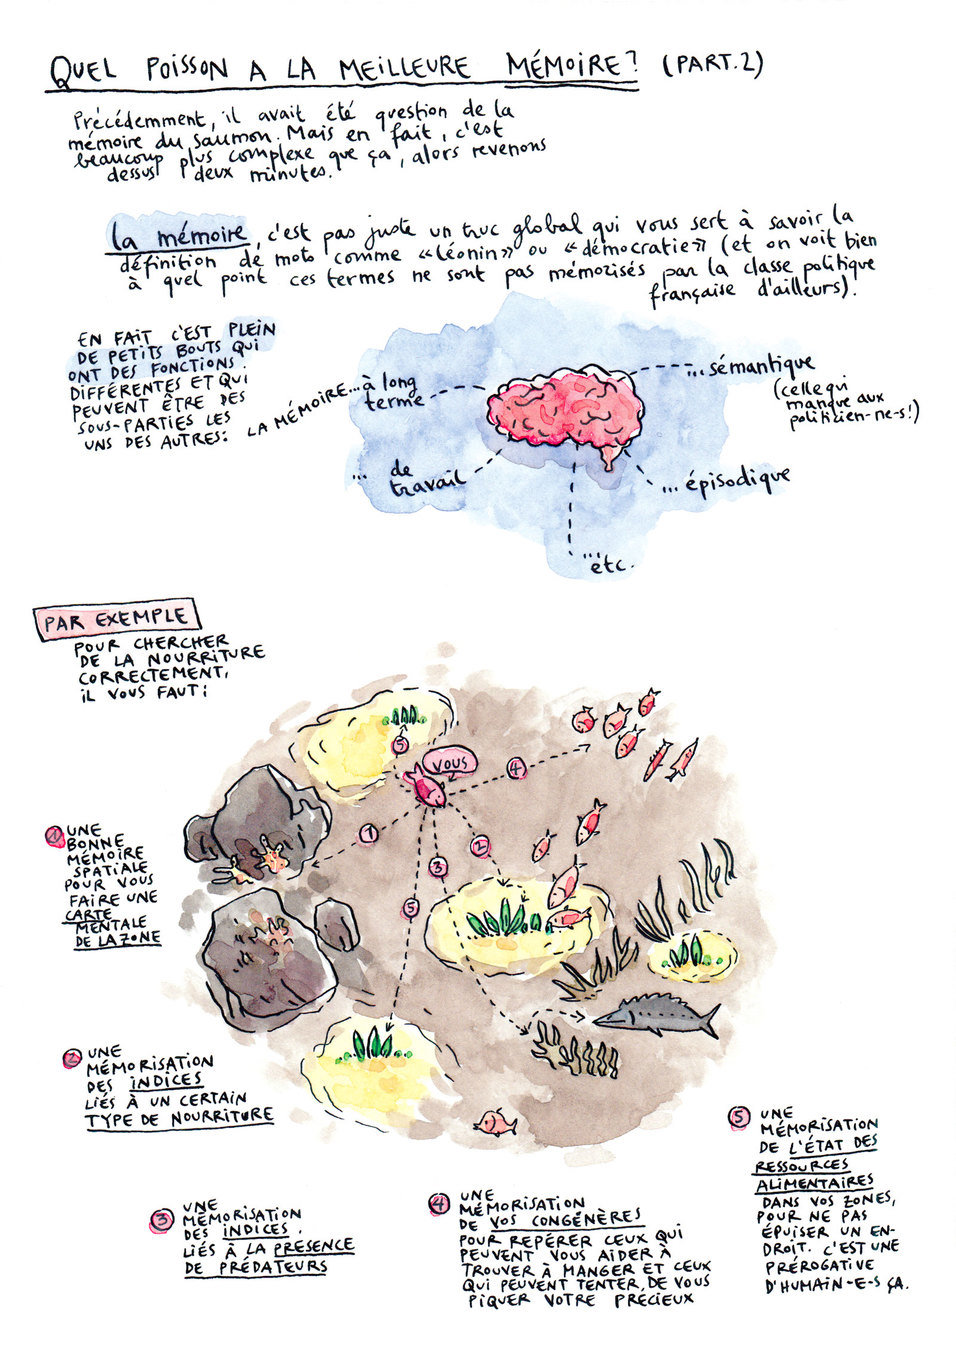 QUEL POISSON A LA MEILLEURE MÉMOIRE? (PART.2)
Précédemment, il avait été question de la
mémoire du saumon. Mais en fait, c'est
beaucoup plus complexe que ça, alors revenons
dessus deux minutes.
la mémoire, c'est pas juste un truc global qui vous sert à savoir la
définition de mots comme «léonin» ou «démocratie» (et on voit bien
à quel point ces termes ne sont pas mémorisés par la classe politique
française d'ailleurs).
EN FAIT C'EST PLEIN
DE PETITS BOUTS QUI
ONT DES FONCTIONS
DIFFÉRENTES ET QUI
PEUVENT ÊTRE DES
SOUS-PARTIES LES
UNS DES AUTRES:
LA MÉMOIRE...
à long
terme
... sémantique
(celle qui
manque aux
politicien-ne-s!)
... de
travail
... épisodique
...
etc.
PAR EXEMPLE
POUR CHERCHER
DE LA NOURRITURE
CORRECTEMENT,
IL VOUS FAUT:
VOUS
5
4
1
2
3
5
1 UNE
BONNE
MÉMOIRE
SPATIALE
POUR VOUS
FAIRE UNE
CARTE
MENTALE
DE LA ZONE
2 UNE
MÉMORISATION
DES INDICES
LIÉS À UN CERTAIN
TYPE DE NOURRITURE
3 UNE
MÉMORISATION
DES INDICES
LIÉS À LA PRESENCE
DE PRÉDATEURS
4 UNE
MÉMORISATION
DE VOS CONGÉNÈRES
POUR REPÉRER CEUX QUI
PEUVENT VOUS AIDER À
TROUVER À MANGER ET CEUX
QUI PEUVENT TENTER DE VOUS
PIQUER VOTRE PRÉCIEUX
5 UNE
MÉMORISATION
DE L'ÉTAT DES
RESSOURCES
ALIMENTAIRES
DANS VOS ZONES,
POUR NE PAS
ÉPUISER UN EN-
DROIT. C'EST UNE
PRÉROGATIVE
D'HUMAIN-E-S ÇA.